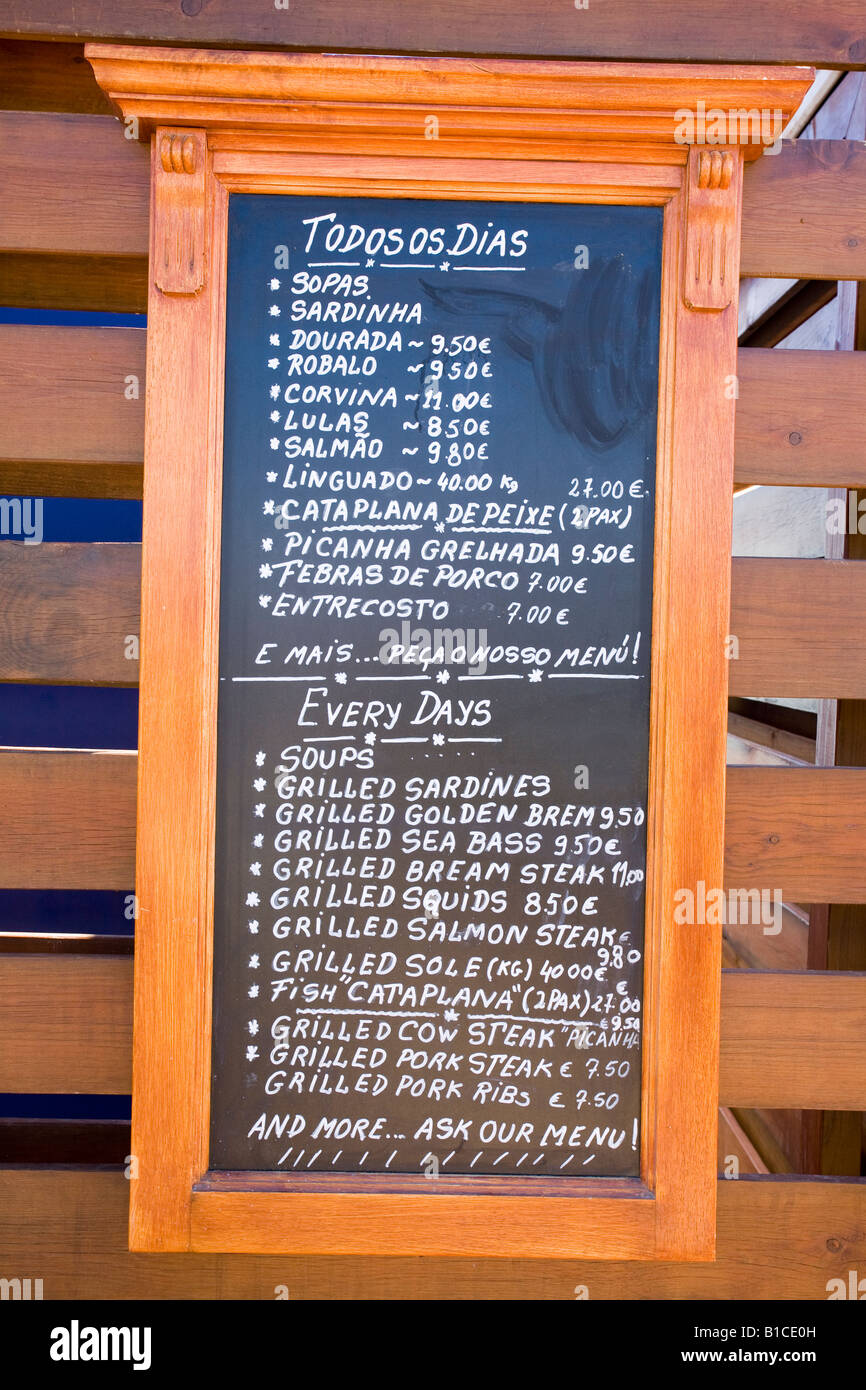 TODOS OS DIAS
* SOPAS
* SARDINHA
* DOURADA ~ 9.50€
* ROBALO ~ 9.50€
* CORVINA ~ 11.00€
* LULAS ~ 8.50€
* SALMÃO ~ 9.80€
* LINGUADO ~ 40.00 Kg
27.00€
* CATAPLANA DE PEIXE (2PAX)
* PICANHA GRELHADA 9.50€
* FEBRAS DE PORCO 7.00€
* ENTRECOSTO 7.00€
E MAIS... PEÇA O NOSSO MENÚ!
EVERY DAYS
* SOUPS
* GRILLED SARDINES
* GRILLED GOLDEN BREM 9.50
* GRILLED SEA BASS 9.50€
* GRILLED BREAM STEAK 11,00
* GRILLED SQUIDS 8.50€
* GRILLED SALMON STEAK €
9.80
* GRILLED SOLE (KG) 40.00€
€
* FISH "CATAPLANA" (2PAX) 27.00
€ 9.50
* GRILLED COW STEAK "PICANHA
* GRILLED PORK STEAK € 7.50
GRILLED PORK RIBS € 7.50
AND MORE... ASK OUR MENU!
alamy
Image ID: B1CE0H
www.alamy.com